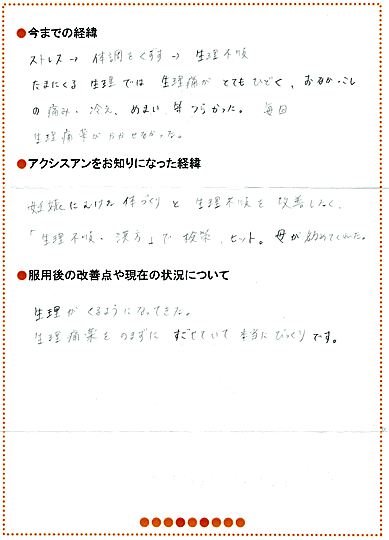 ●今までの経緯
ストレス→体調をくずす→生理不順
たまにくる生理では生理痛がとてもひどく、おなかこし
の痛み・冷え、めまい、等つらかった。毎回
生理痛薬がかかせなかった。
●アクシスアンをお知りになった経緯
妊娠にむけた体づくりと生理不順を改善したく、
「生理不順・漢方」で検索、ヒット。母が勧めてくれた。
●服用後の改善点や現在の状況について
生理がくるようになってきた。
生理痛薬をのまずにすごせていて本当にびっくりです。